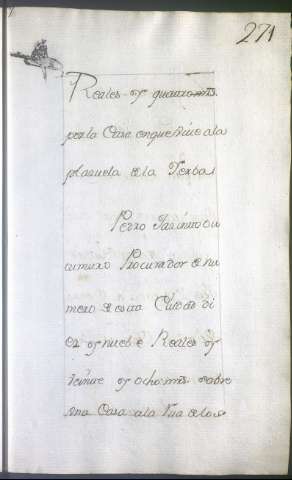 271
Reales y quatro mrs
por la Casa en que vive a la
plazuela de la Yerba
Pedro Jacinto
Procurador de nu
mero de esta Ciudad di
ez y nueve Reales y
veinte y ocho mrs sobre
una Casa a la Rua de los